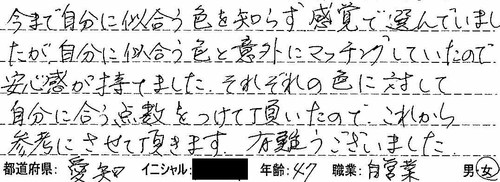 今まで自分に似合う色を知らず感覚で選んでいまし
たが、自分に似合う色と意外にマッチングしていたので
安心感が持てました。それぞれの色に対して
自分に合う点数をつけて頂いたので、これから
参考にさせて頂きます。有難うございました
都道府県: 愛知 イニシャル: 年齢: 47 職業: 自営業 男 女